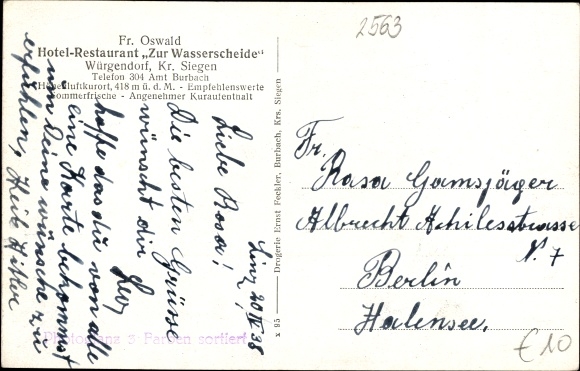 2563
Fr. Oswald
Hotel-Restaurant „Zur Wasserscheide"
Würgendorf, Kr. Siegen
Telefon 304 Amt Burbach
Höhenluftkurort, 418 m ü. d. M. - Empfehlenswerte
Sommerfrische - Angenehmer Kuraufenthalt
Linz, 20 IV 38
Liebe Rosa!
Die besten Grüsse
wünscht dir
hoffe das du von alle
eine Karte bekommst
um Deine wünsche zu
erfühlen, Heil Hitler
Photoglanz 3 Farben sortiert
x 95 — Drogerie Ernst Feckler, Burbach, Krs. Siegen
Fr.
Rasa Gamsjäger
Albrecht Achilesstrasse
N. 7
Berlin
Halensee.
€10